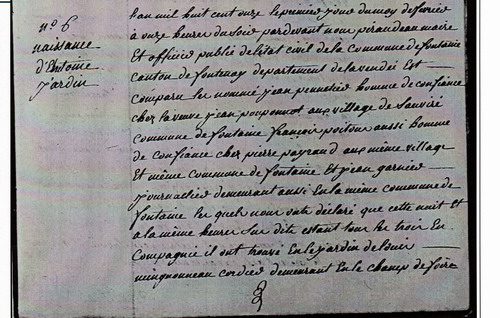 n.° 6
naissance
d'Antoine
jardin
Lan mil huit cent onze le premier jour du moy de fevrier
à onze heures du soir pardevant nous pirandeau maire
Et officier public de letat civil de la commune de fontaine
canton de fontenay departement de la vendée Est
comparu les nommé jean homme de confiance
chez la veuve jean poupennot au village de Sauviré
commune de fontaine françois poitou aussi homme
de confiance chez pierre payraud au même village
Et même commune de fontaine Et jean garnier
journallier demeurant aussi En la même commune de
fontaine les quels nous ont déclaré que cette nuit Et
a la même heure sus dite estant tous les trois En
Compagnie il ont trouvé En le jardin de louis
mingnonneau cordier demeurant En le champ de foire